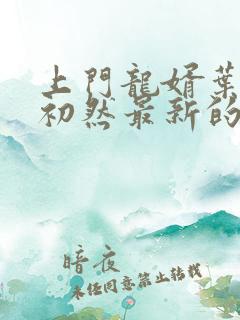 上門龍婿葉
初然最新的
暗夜
未经同意禁止转载